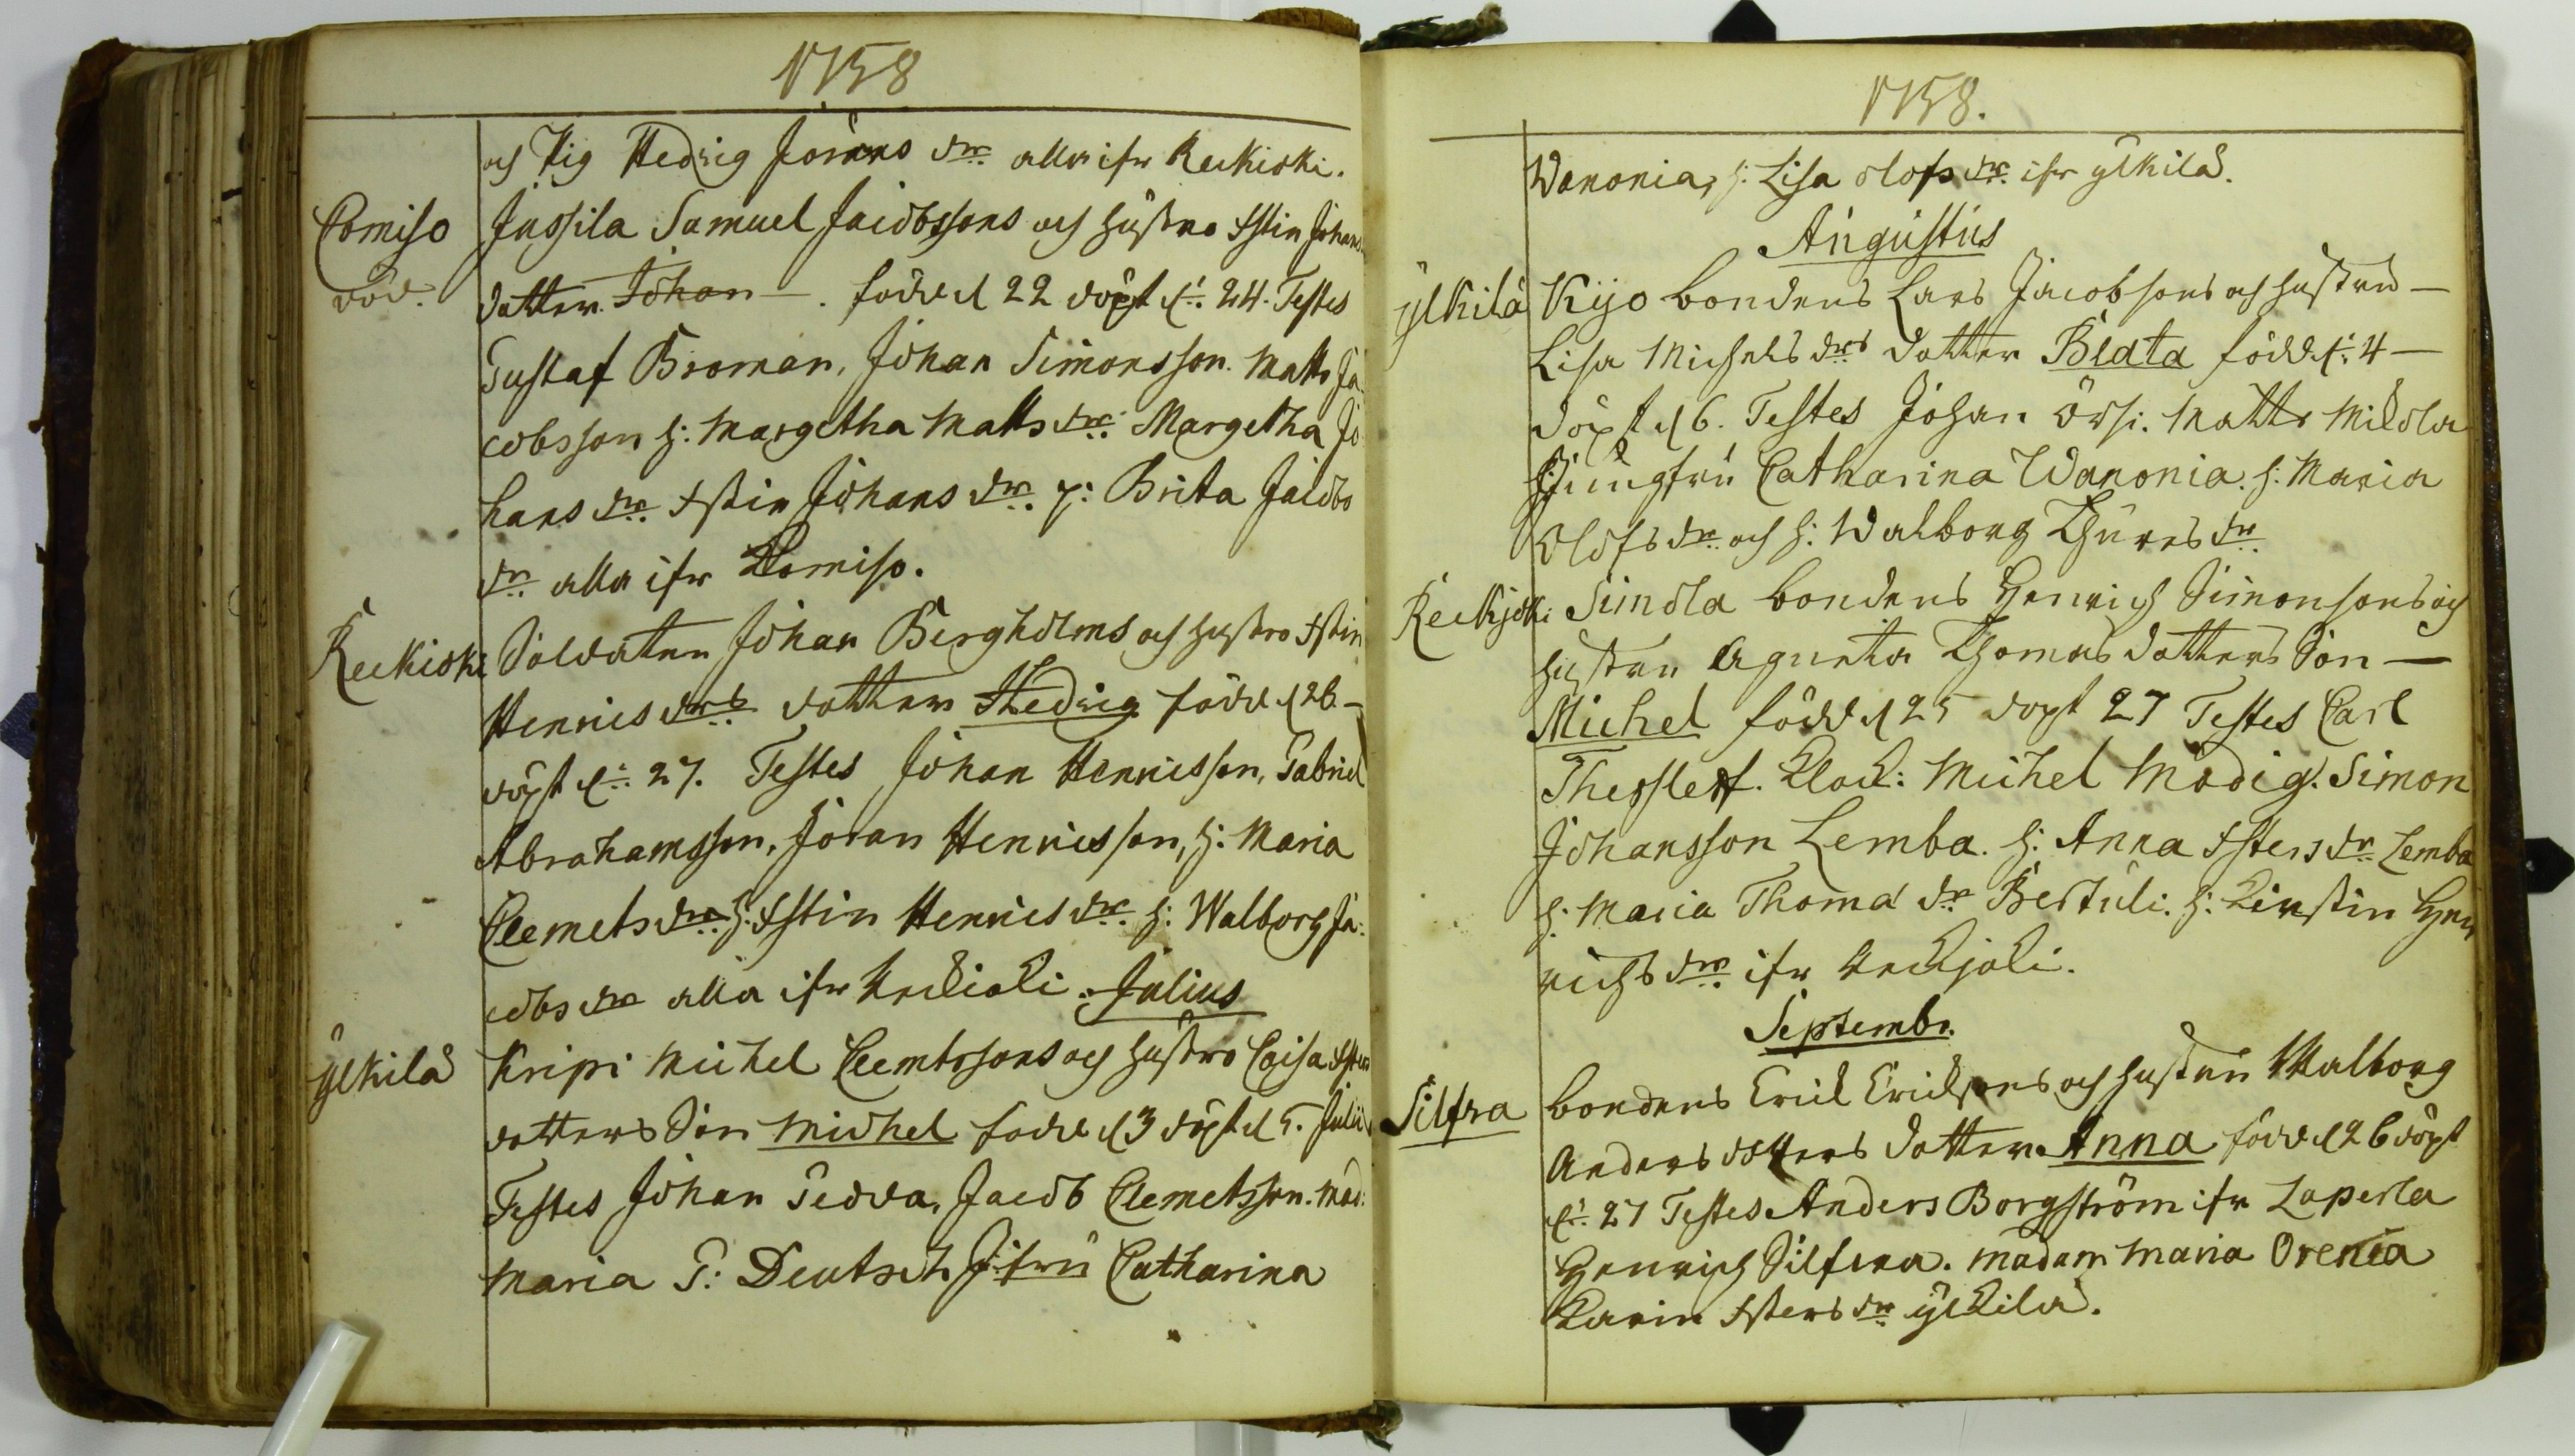 1758
och Pig Hedvig Jörans dr. alla ifr Reckioki.
Comiso Jussila Samuel Jacobssons och Hustro Xstin Johans
död. dotter Johan —. född d 22 döpt d: 24. Testes
Gustaf Broman, Johan Simonsson. Matts Ja-
cobsson h: Margetha Matts dr. Margetha Jo
hans dr. Xstin Johans dr. p: Brita Jacobs
dr. alla ifr Komiso.
Reckioki Soldaten Johan Bergholms och hustro Xstin
Henrics drs dotter Hedvig född d 26 —
döpt d: 27. Testes Johan Henricsson, Gabriel
Abrahamsson, Jöran Henricsson, h: Maria
Clemets dr. h: Xstin Henrics dr. h: Walborg Ja:
cobs dr alla ifr Reckioki. Julius
ÿlkilä Kripi Michel Clemetssons och Hustro Caisa Xsters
dotters Son Michel född d 3 döpt d 5. Julii
Testes Johan Sedva, Jacob Clemetsson. Mad:
Maria G: Deutsch Jfru Catharina
1758.
Wanonia, h: Lisa Olofs dr. ifr ÿlkilä.
Augustus
ÿlkilä Kijo bondens Lars Jacobsons och hustru —
Lisa Michels drs dotter Beata född d: 4 —
döpt d 6. Testes Johan Örsi. Matts Mickola
Jungfru Catharina Wanonia. h: Maria
Olofs dr. och h: Walborg Thures dr.
Reckjoki Simola bondens Henrich Simonsons och
hustru Agneta Thomas dotters Son —
Michel född d 25 döpt 27 Testes Carl
Thessleff. Klock: Michel Modig. Simon
Johansson Lemba. h: Anna Xsters dr. Lemba
h: Maria Thoma dr. Bertuli. h: Kirstin Hen
richs dr. ifr Reckjoki.
Septembr.
Silfra bondens Erick Ericksons och hustru Walborg
Anders dotters dotter Anna född d 26 döpt
d: 27 Testes Anders Borgström ifr Laperla
Henrich Silfra. Madam Maria Orenia
Karin Xsters dr. ÿlkilä.